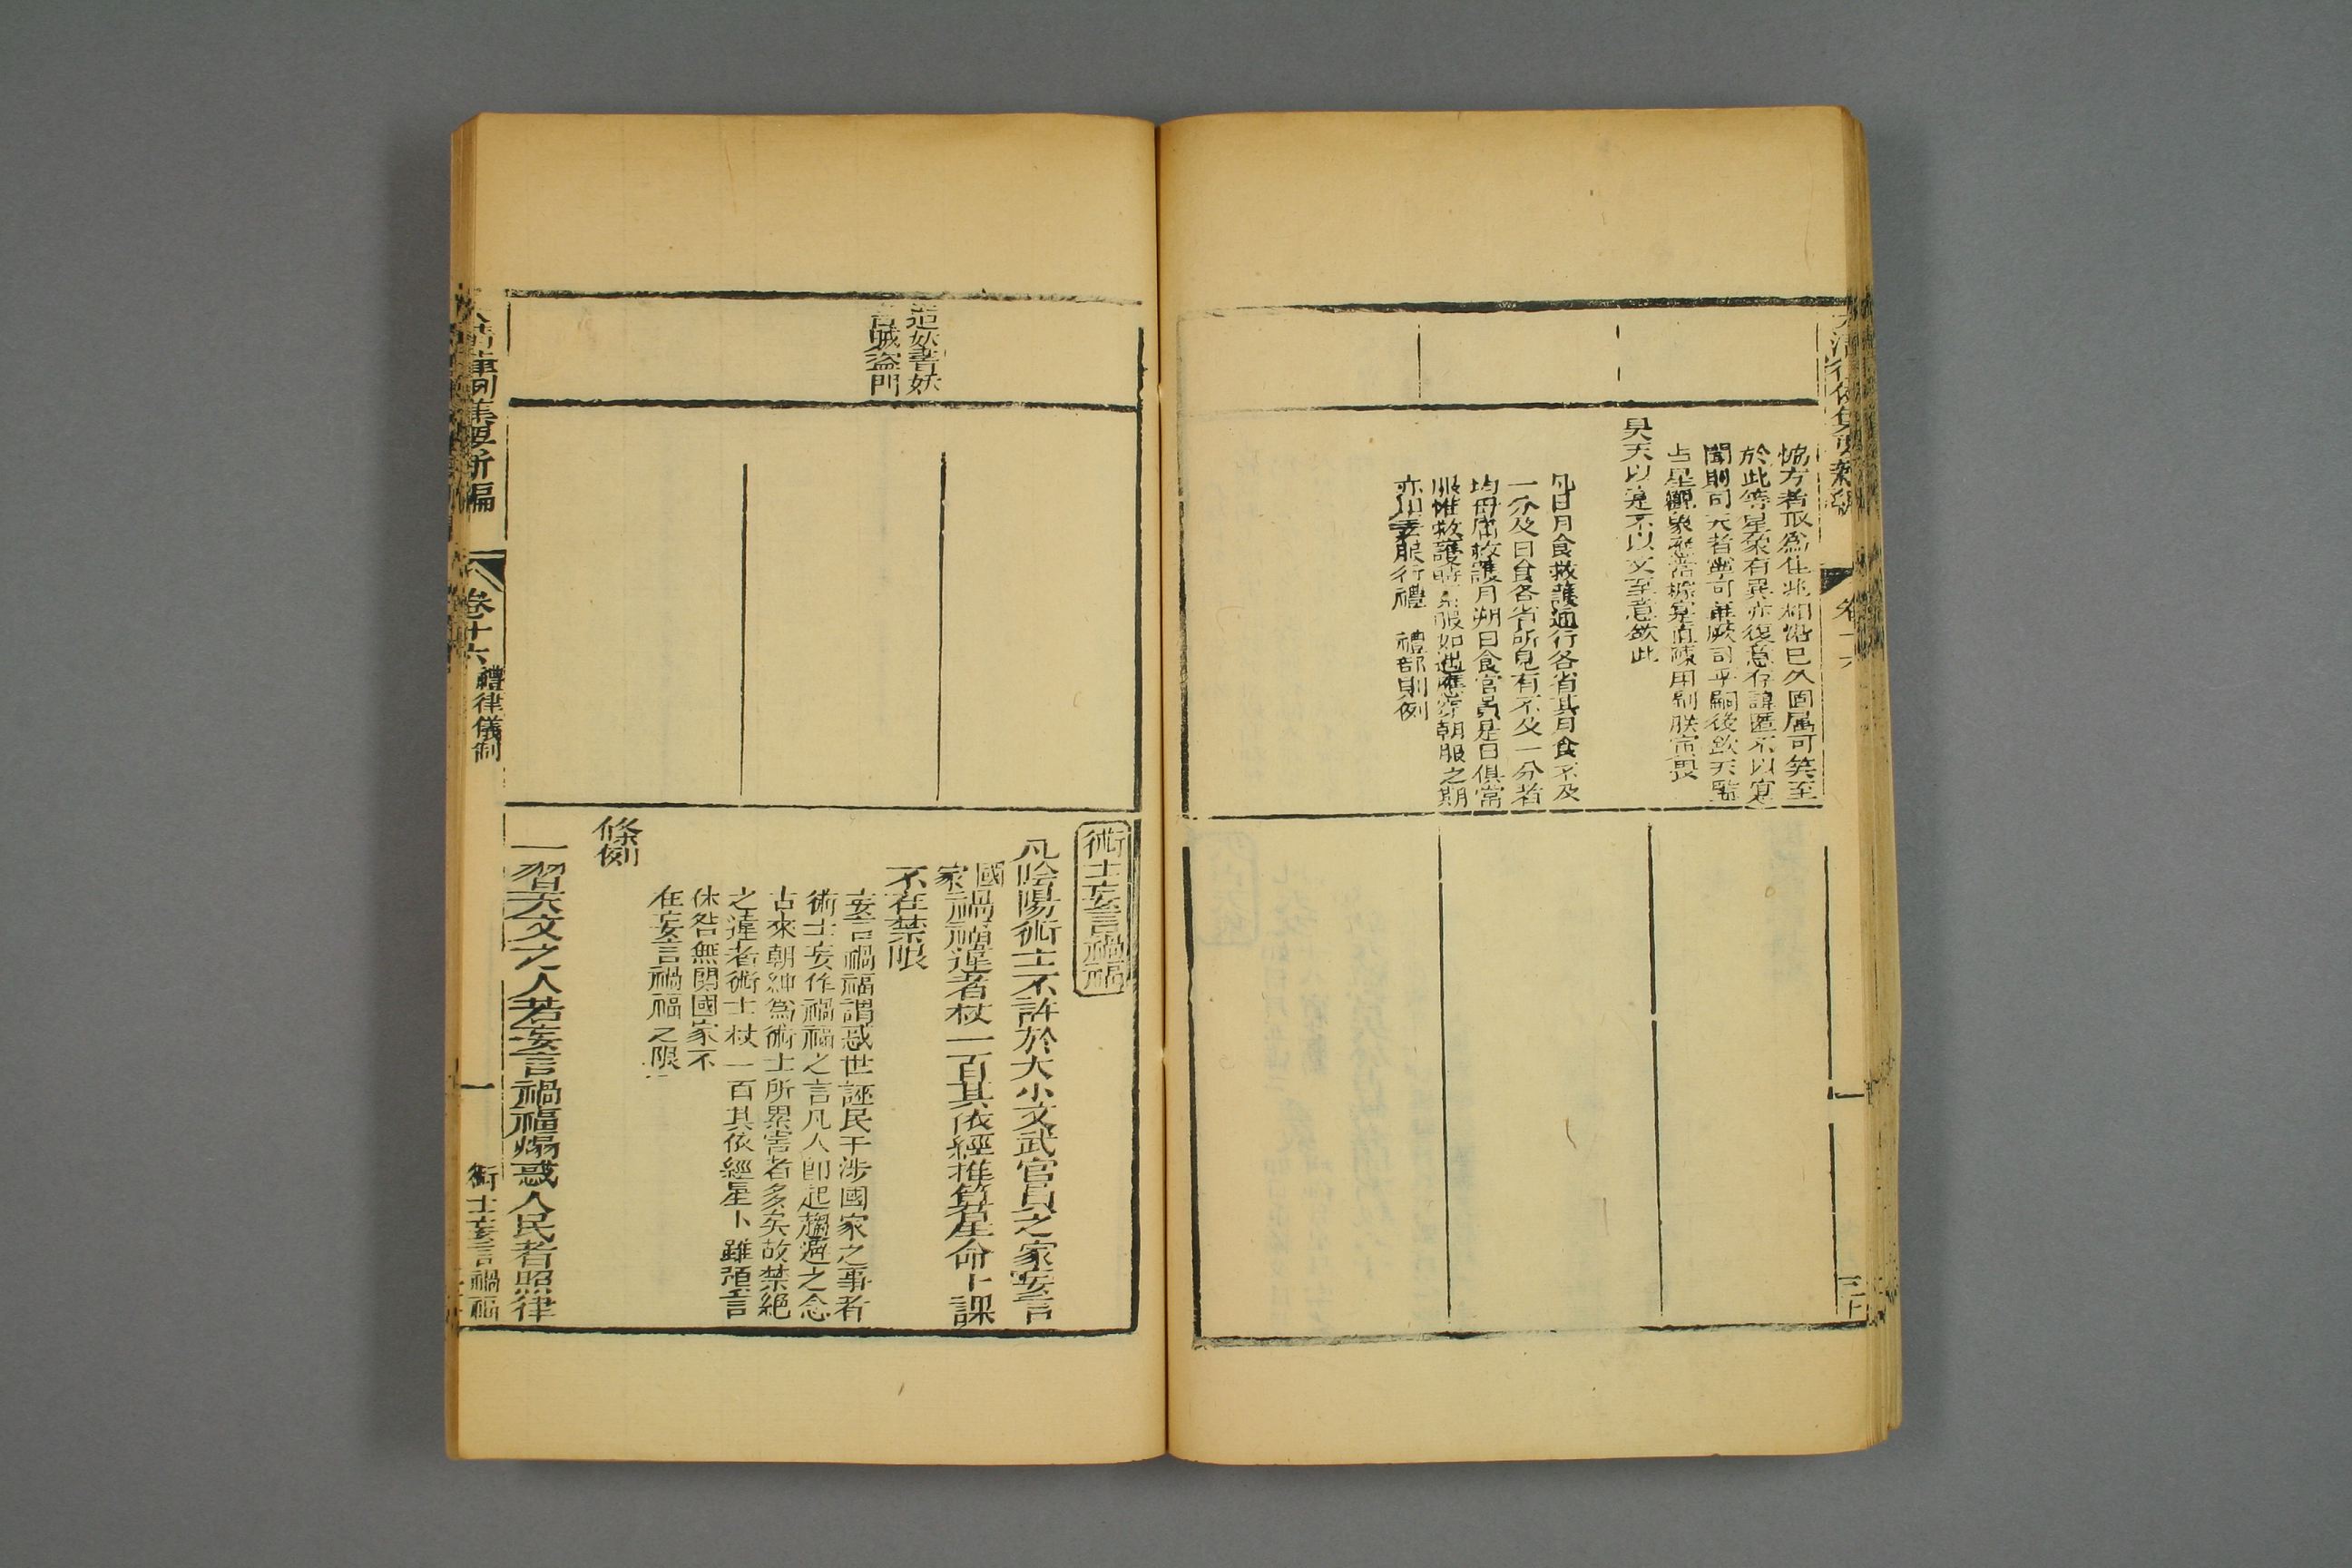 恊方者取爲佳兆相沿已久固属可笑至
於此等星象有異亦復意存諱匿不以寔
聞則司天者豈可
占星觀象
昊天以寔不以文至意欽此
凡日月食救護通行各省其月食不及
一分及日食各省所見有不及一分者
均毋庸救護月朔日食官員是日俱常
服惟救護時素服如遇應穿朝服之期
亦
服行禮 禮部則例
造妖書妖
言賊盜門
術士妄言禍福
凡陰陽術士不許於大小文武官員之家妄言
國
家禍福違者杖一百其依經推算星命卜課
不在禁限
妄言禍福謂惑世誣民干涉國家之事者
術士妄作禍福之言凡人卽起趨避之念
古來朝紳爲術士所累害者多矣故禁絕
之違者術士杖一百其依經星卜雖預言
休咎無關國家不
在妄言禍福之限
條例
一習天文之人若妄言禍福煽惑人民者照律
大清律例集要新編
卷十六
禮律儀制
一
術士妄言禍福